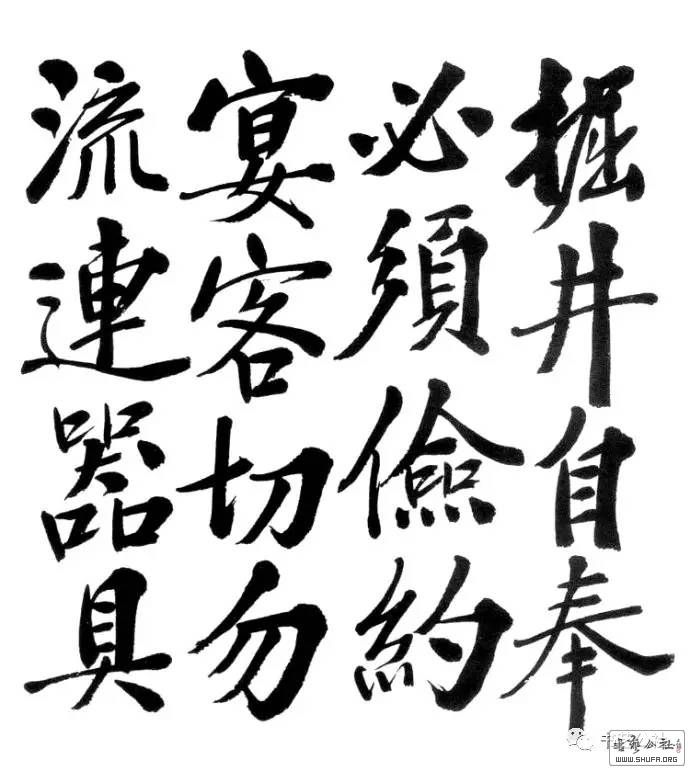 掘井自奉
必須儉約
宴客切勿
流連器具
書藝公社
WWW.SHUFA.ORG